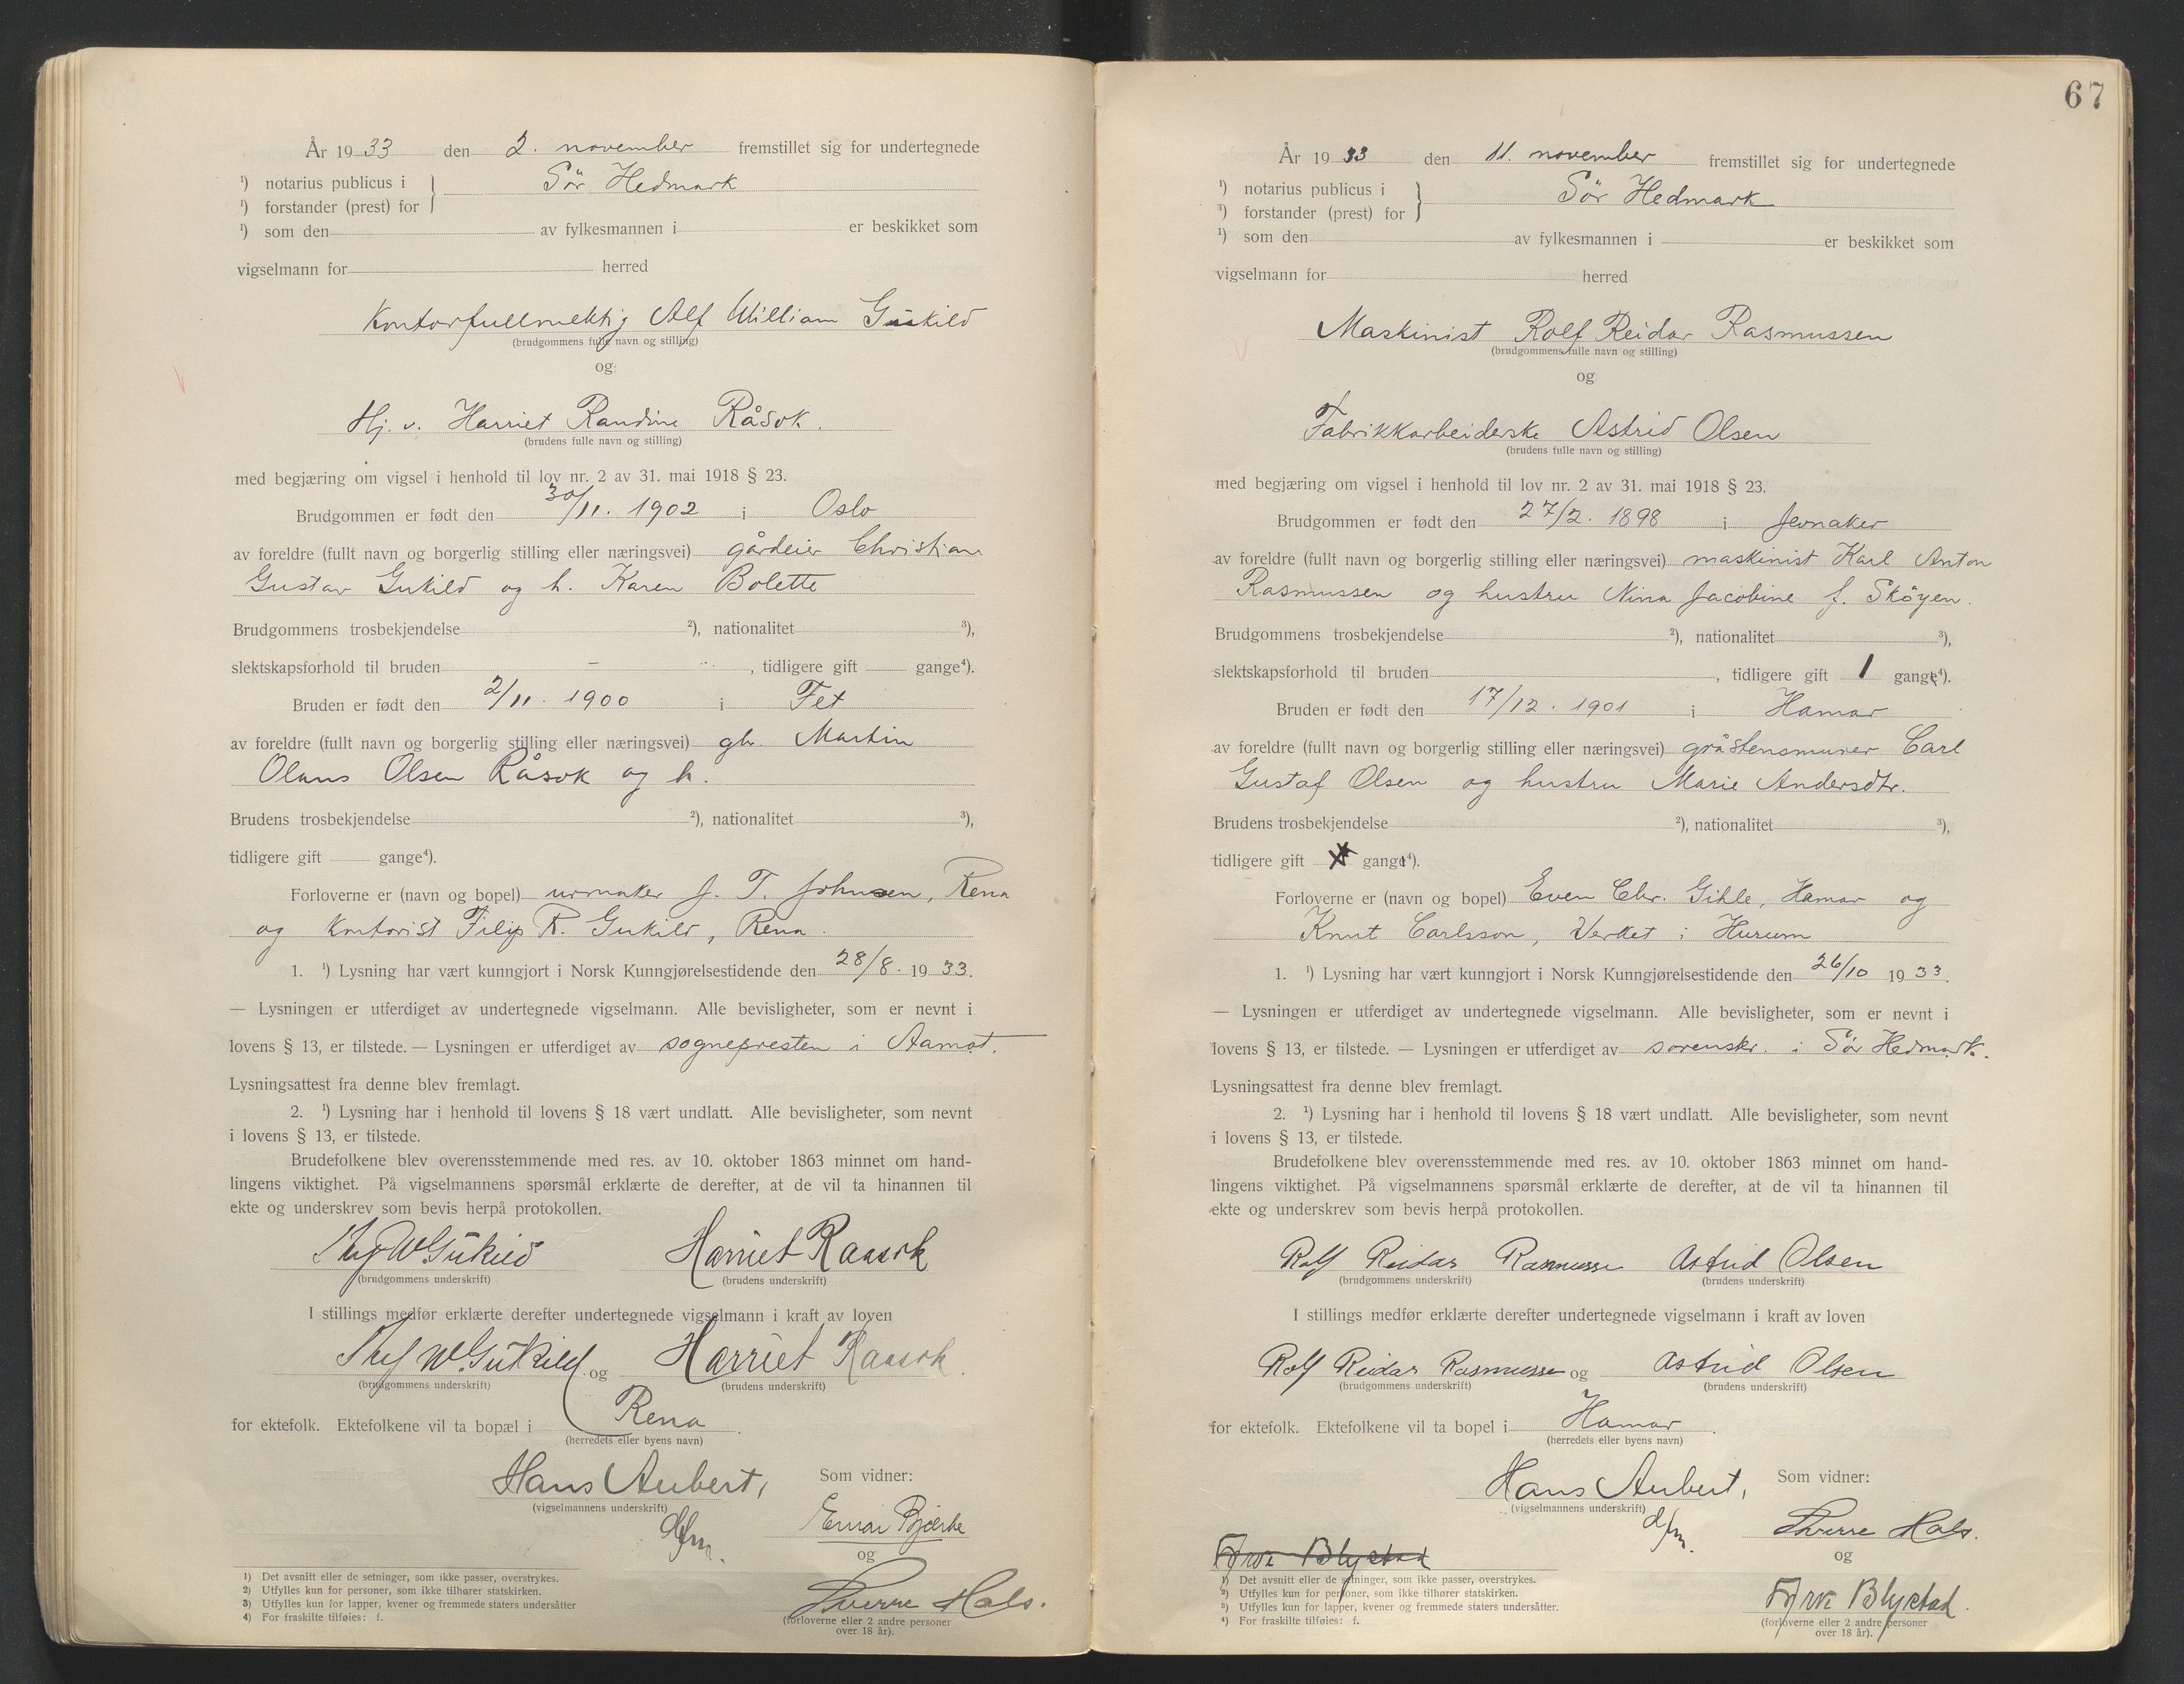 År 1933 den 2. november fremstillet sig for undertegnede
¹) notarius publicus i } Sör Hedmark
¹) forstander (prest) for
¹) som den av fylkesmannen i er beskikket som
vigselmann for herred
Kontorfullmektig Alf William Gukild
(brudgommens fulle navn og stilling)
og
Hj. v. Harriet Randine Råsok.
(brudens fulle navn og stilling)
med begjæring om vigsel i henhold til lov nr. 2 av 31. mai 1918 § 23.
Brudgommen er født den 30/11. 1902 i Oslo
av foreldre (fullt navn og borgerlig stilling eller næringsvei) gårdeier Christian
Gustav Gukild og h. Karen Bolette
Brudgommens trosbekjendelse ²), nationalitet ³),
slektskapsforhold til bruden – , tidligere gift gange⁴).
Bruden er født den 2/11. 1900 i Fet
av foreldre (fullt navn og borgerlig stilling eller næringsvei) gbr. Martin
Olaus Olsen Råsok og h.
Brudens trosbekjendelse ²), nationalitet ³),
tidligere gift gange⁴).
Forloverne er (navn og bopel) urmaker J. T. Johnsen, Rena
og kontorist Filip R. Gukild, Rena.
1. ¹) Lysning har vært kunngjort i Norsk Kunngjørelsestidende den 28/8. 1933.
— Lysningen er utferdiget av undertegnede vigselmann. Alle bevisligheter, som er nevnt i
lovens § 13, er tilstede. — Lysningen er utferdiget av sognepresten i Aamot.
Lysningsattest fra denne blev fremlagt.
2. ¹) Lysning har i henhold til lovens § 18 vært undlatt. Alle bevisligheter, som nevnt
i lovens § 13, er tilstede.
Brudefolkene blev overensstemmende med res. av 10. oktober 1863 minnet om hand-
lingens viktighet. På vigselmannens spørsmål erklærte de derefter, at de vil ta hinannen til
ekte og underskrev som bevis herpå protokollen.
Alf W Gukild Harriet Raasok
(brudgommens underskrift) (brudens underskrift)
I stillings medfør erklærte derefter undertegnede vigselmann i kraft av loven
Alf W Gukild og Harriet Raasok
(brudgommens underskrift) (brudens underskrift)
for ektefolk. Ektefolkene vil ta bopæl i Rena.
(herredets eller byens navn)
Hans Aubert, Som vidner:
(vigselmannens underskrift)
dfm. Einar Bjerke
og
Sverre Hals.
(forloverne eller 2 andre personer
over 18 år).
1) Det avsnitt eller de setninger, som ikke passer, overstrykes.
2) Utfylles kun for personer, som ikke tilhører statskirken.
3) Utfylles kun for lapper, kvener og fremmede staters undersåtter
4) For fraskilte tilføies: f.
67
År 1933 den 11. november fremstillet sig for undertegnede
¹) notarius publicus i } Sör Hedmark
¹) forstander (prest) for
¹) som den av fylkesmannen i er beskikket som
vigselmann for herred
Maskinist Rolf Reidar Rasmussen
(brudgommens fulle navn og stilling)
og
Fabrikkarbeiderske Astrid Olsen
(brudens fulle navn og stilling)
med begjæring om vigsel i henhold til lov nr. 2 av 31. mai 1918 § 23.
Brudgommen er født den 27/2. 1898 i Jevnaker
av foreldre (fullt navn og borgerlig stilling eller næringsvei) maskinist Karl Anton
Rasmussen og hustru Nina Jacobine f. Sköyen.
Brudgommens trosbekjendelse ²), nationalitet ³),
slektskapsforhold til bruden , tidligere gift 1 gange⁴).
Bruden er født den 17/12. 1901 i Hamar
av foreldre (fullt navn og borgerlig stilling eller næringsvei) gråstensmurer Carl
Gustaf Olsen og hustru Marie Andersdtr.
Brudens trosbekjendelse ²), nationalitet ³),
tidligere gift gange⁴).
Forloverne er (navn og bopel) Even Chr. Gihle, Hamar og
Knut Carlsson, Verket i Hurum
1. ¹) Lysning har vært kunngjort i Norsk Kunngjørelsestidende den 26/10 1933.
— Lysningen er utferdiget av undertegnede vigselmann. Alle bevisligheter, som er nevnt i
lovens § 13, er tilstede. — Lysningen er utferdiget av sorenskr. i Sör Hedmark.
Lysningsattest fra denne blev fremlagt.
2. ¹) Lysning har i henhold til lovens § 18 vært undlatt. Alle bevisligheter, som nevnt
i lovens § 13, er tilstede.
Brudefolkene blev overensstemmende med res. av 10. oktober 1863 minnet om hand-
lingens viktighet. På vigselmannens spørsmål erklærte de derefter, at de vil ta hinannen til
ekte og underskrev som bevis herpå protokollen.
Rolf Reidar Rasmusse Astrid Olsen
(brudgommens underskrift) (brudens underskrift)
I stillings medfør erklærte derefter undertegnede vigselmann i kraft av loven
Rolf Reidar Rasmusse og Astrid Olsen
(brudgommens underskrift) (brudens underskrift)
for ektefolk. Ektefolkene vil ta bopel i Hamar.
(herredets eller byens navn)
Hans Aubert, Som vidner:
(vigselmannens underskrift)
dfm. Sverre Hals.
og
Arve Blystad
Arve Blystad.
(forloverne eller 2 andre personer
over 18 år).
¹) Det avsnitt eller de setninger, som ikke passer, overstrykes.
²) Utfylles kun for personer, som ikke tilhører statskirken.
³) Utfylles kun for lapper, kvener og fremmede staters undersåtter.
⁴) For fraskilte tilføies: f.